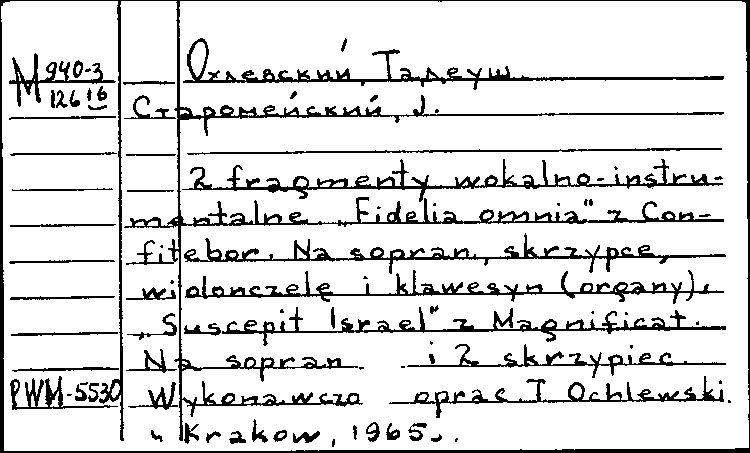 М 940-3
126 16
Охлевский, Тадеуш.
Старомейский, J.
2 fragmenty wokalno-instru-
mentalne. „Fidelia omnia" z Con-
fitebor. Na sopran, skrzypce,
wiolonczelę i klawesyn (organy).
„Suscepit Israel" z Magnificat.
Na sopran i 2 skrzypiec.
PWM-5530
Wykonawczo oprac. T. Ochlewski.
Krakow, 1965.